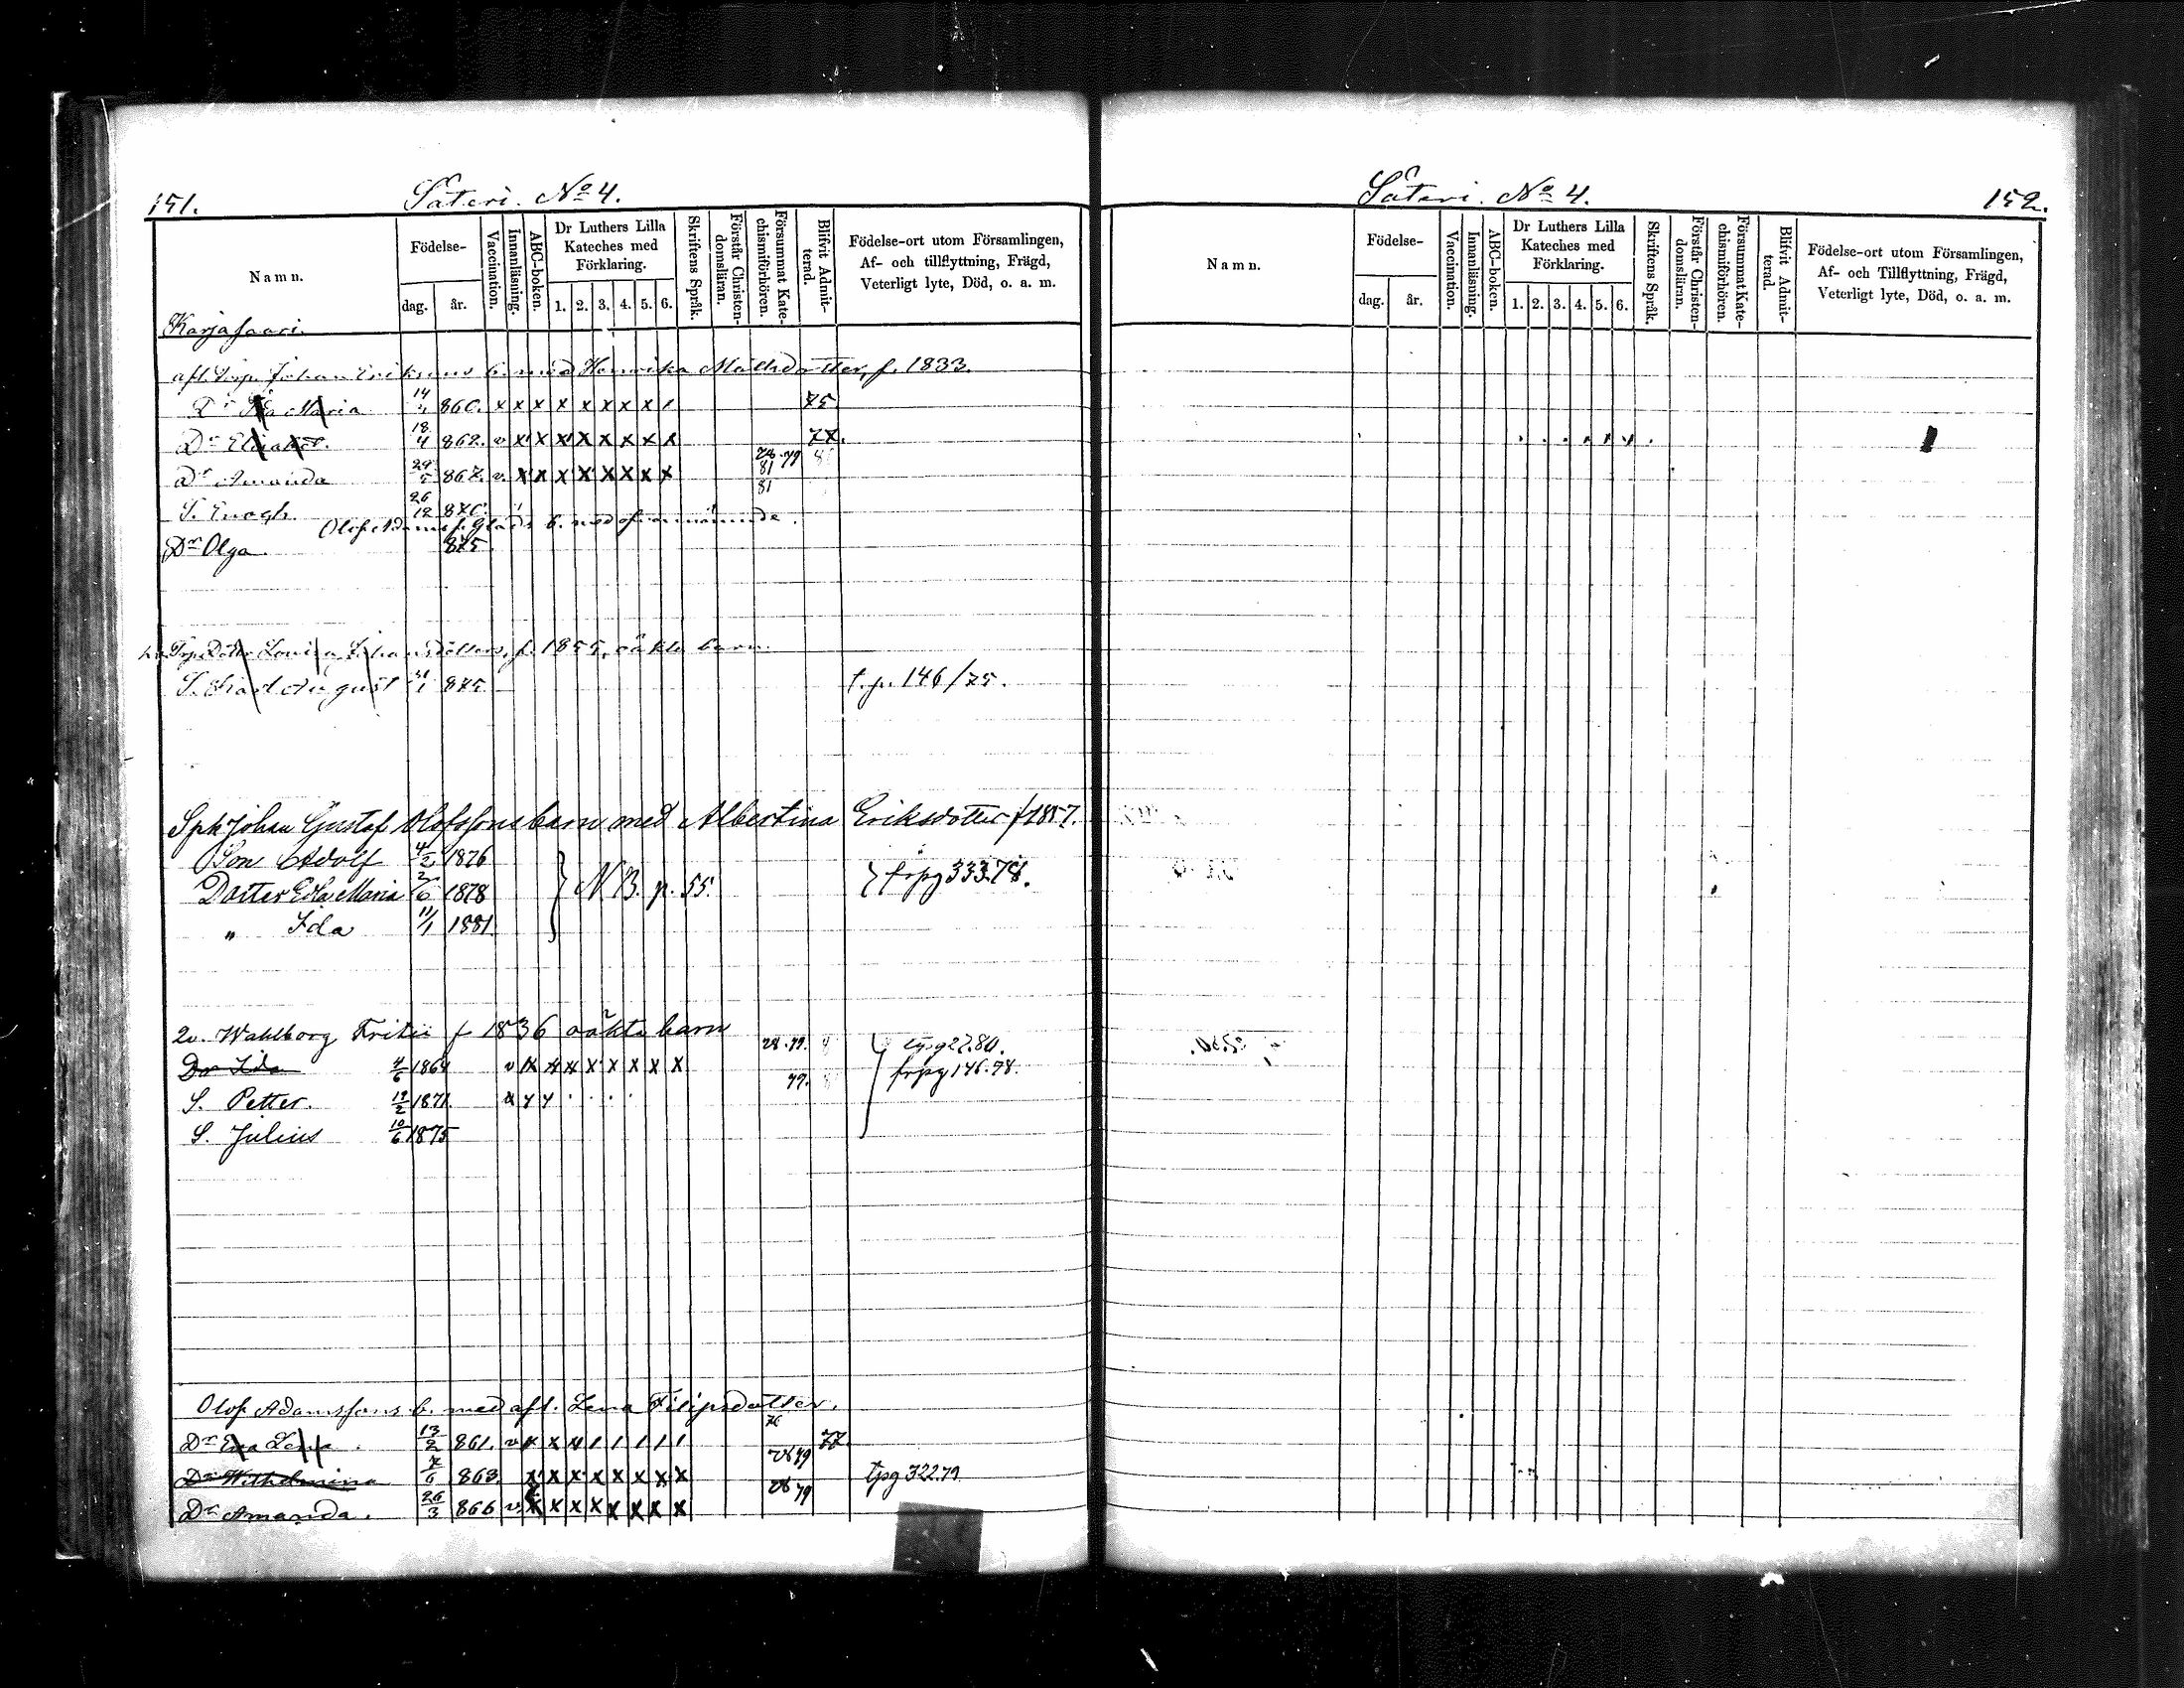 151. Säteri. No 4.
Namn. Födelse- dag. år. Vaccination. Innanläsning. ABC-boken. Dr Luthers Lilla Kateches med Förklaring. 1. 2. 3. 4. 5. 6. Skriftens Språk. Förstår Christendomsläran. Försummat Katechismiförhören. Blifvit Admitterad. Födelse-ort utom Församlingen, Af- och tillflyttning, Frägd, Veterligt lyte, Död, o. a. m.
Karjasaari.
afl. Torp. Johan Erikssons b. med Henrika Mathsdotter, f. 1833.
Dr Maria 14 860. x x x x x x x x 75.
Dr 18/4 862. v x x x x x x x x 77.
Dr Amanda 29/5 867. v. x x x x x x x x 78. 79 81
S. Enogh. 26/12 870. 81
Olof Adamss. b. med ofvannämnde.
Dr Olga. 875
Lovisa Johansdotters, f. 1855, oäkta barn.
S. Karl August 875 f. p. 146/75.
Sph Johan Gustaf Olofssons barn med Albertina Eriksdotter f 1857.
Son Adolf 4/2 1876
Dotter Eda Maria 1878 N B. p. 55. frpg 333.78.
" Ida 11/1 1881.
Wahlborg f 1836 oäkta barn
Dr Ida 4/6 1864 v x x x x x x x x 78. 79. tpg 27.80.
S. Petter. 19/2 1871. x 79. frpg 146.78.
S. Julius 10/6 1875
Olof Adamssons b. med afl. Lena Filipsdotter.
Dr Eva Lena. 13/2 861. v x x x 1 1 1 1 1 76 77.
Dr Wilhelmina 7/6 863. x x x x x x x x 78 79 tpg 322.79
Dr Amanda. 26/3 866 v x x x x x x x x 78 79
Säteri. No 4. 152.
Namn. Födelse- dag. år. Vaccination. Innanläsning. ABC-boken. Dr Luthers Lilla Kateches med Förklaring. 1. 2. 3. 4. 5. 6. Skriftens Språk. Förstår Christendomsläran. Försummat Katechismiförhören. Blifvit Admitterad. Födelse-ort utom Församlingen, Af- och Tillflyttning, Frägd, Veterligt lyte, Död, o. a. m.